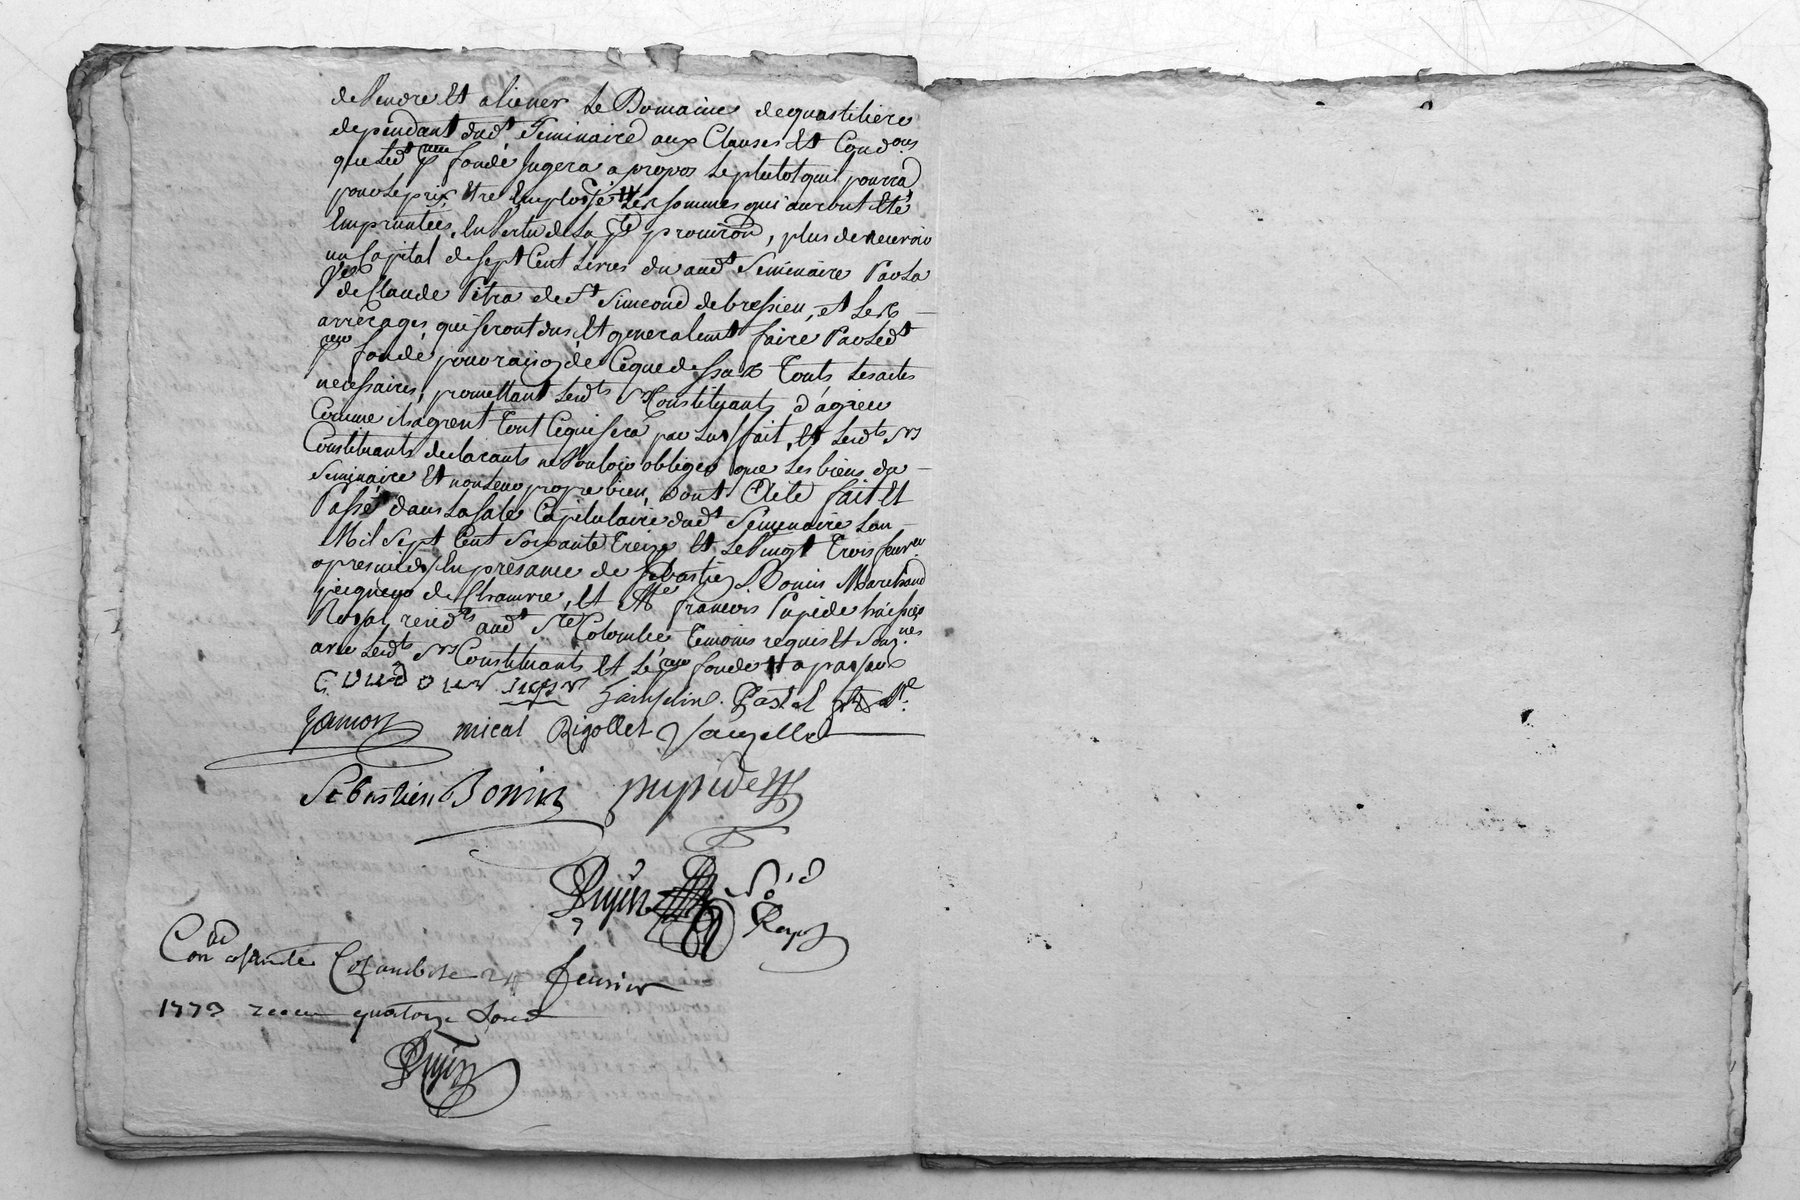 de Vendre Et aliener Le Domaine de quastiliere
dependant dud.t Seminaire aux Clauses Et Cond.ons
que led.t p.eur fondé Jugera a propos Le plutot quil pourra
pour Le prix Etre Employé Les sommes qui auront Eté
Empruntées En Vertu de La p.te p rouiron, plus de receuoir
un Capital de Sept Cent Livres du aud.t Seminaire Par La
V.ve de Claude Pitra de S.t Simeond de bressieu, et Les
arrérages qui seront dus Et generalem.t faire Par led.t
p.eur fondé pour raison de Ce que dessus Touts Les actes
necessaires, promettant Lesd.ts S.rs Constituants d'agréer
Comme ils agreent Tout Ce qui sera par Luy fait, Et Lesd.ts S.rs
Constituants declarants ne Vouloir obliger que Les biens du
Seminaire Et non Leur propre bien, Dont Acte fait Et
Passé dans La Sale Capitulaire dud.t Seminaire Lan
Mil Sept Cent Soixante Treize Et Le Vingt Trois feur.er
apres midy En présance de Sebastien Bonin Marchand
peigneur de Chanvre, Et M.e francois Pupide huissier
Royal resid.ts aud.t S.te Colombe Temoins requis Et Soussig.nés
avec Lesd.ts S.rs Constituants Et Le p.eur fondé
Jamelin. Pastel
Gamon mical Rigollet Vauzelle
Sebastien Bonin pupide
Puyin
Royal
Con.lé Coste Colombe feurier
1773 receu quatorze Sous
Puyin